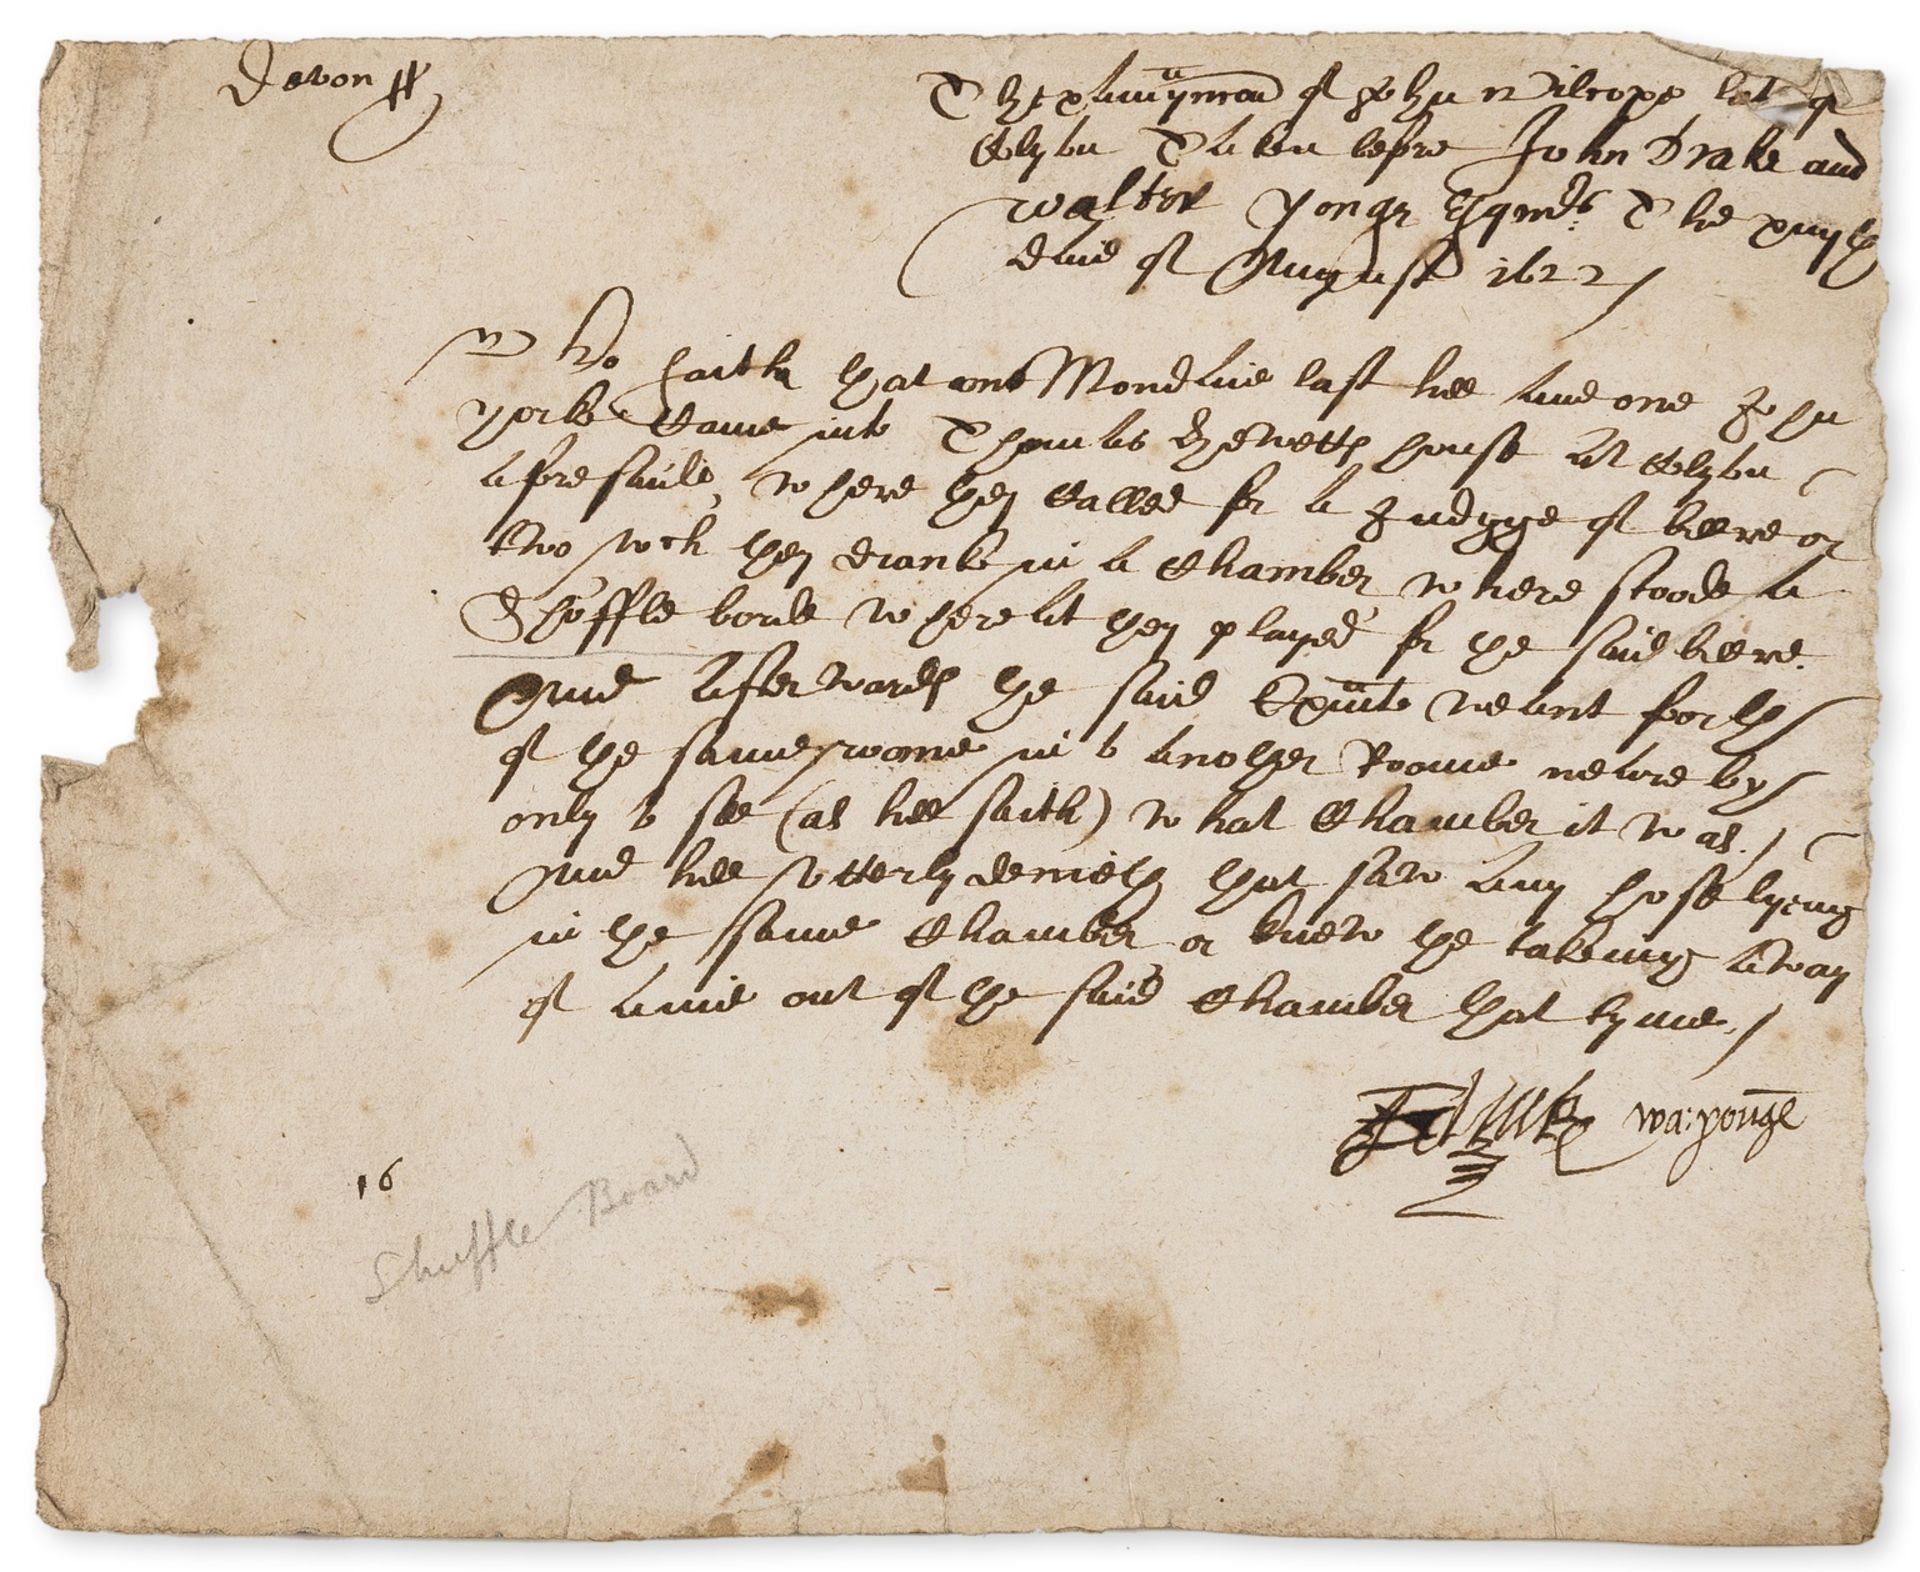 Devon ss
The examinacon of John Wilcope late of
Colyton Taken before John Drake and
Walter Yonge Esquiers The xxvijth
daie of August 1622 /
Who saith that one Mondaie last hee and one John
Yorke Came into Thomas house at Colyton
aforesaide, where they Called for a Judgge of beere or
two wch they dranke in a Chamber where stoode a
Shoffle borde where at they played for the said beere.
And afterwards the said Exait weant forth
of the same roome into another Roome neare by
only to see (as hee saith) what Chamber it was. /
And hee utterly denieth that saw any hose lyeing
in the same Chamber or knew the takeing away
of anie out of the said Chamber that tyme. /
wa: yonge
16
Shuffle Board